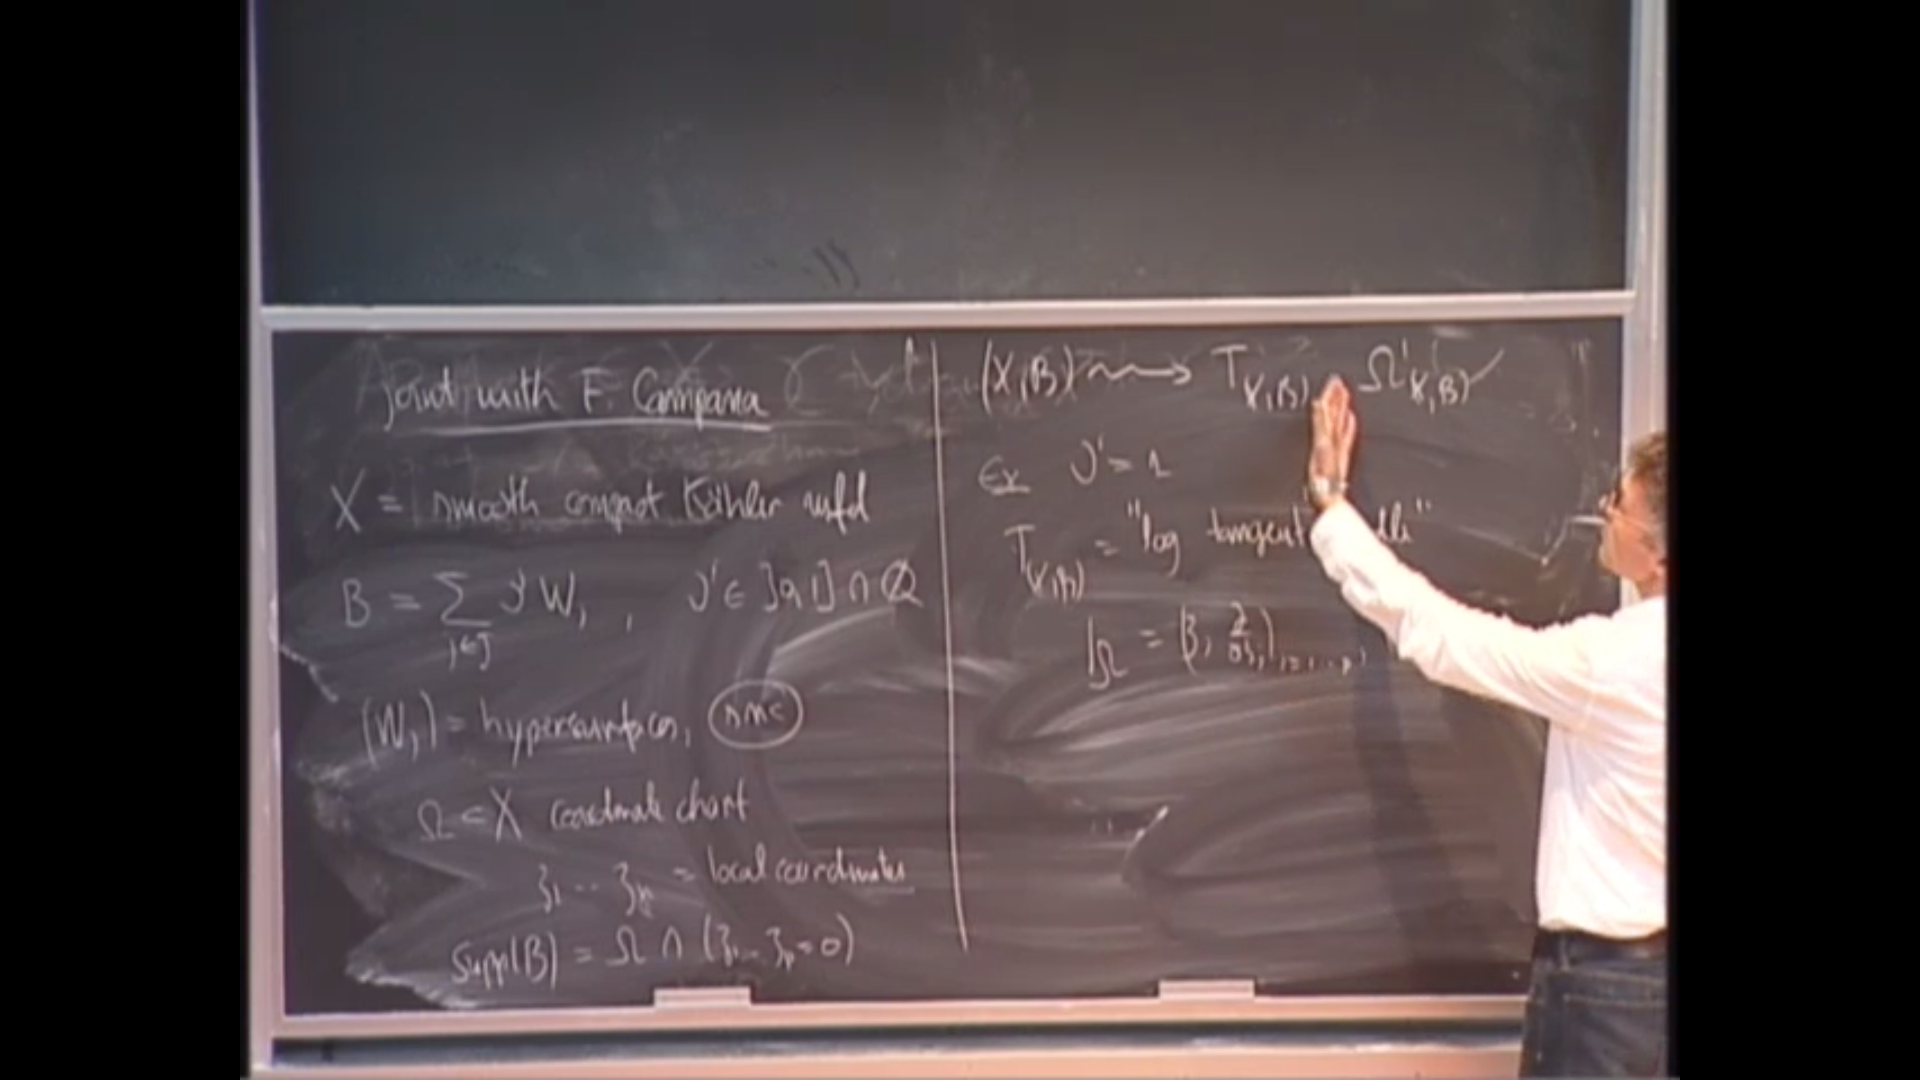 Joint with F. Campana
X = smooth compact Kähler mfd
B = ∑_{j∈J} ν^j W_j , ν^j ∈ ]0,1] ∩ Q
(W_j) = hypersurfaces, snc
Ω ⊂ X coordinate chart
z_1 .. z_n = local coordinates
Supp(B) = Ω ∩ (z_1 ... z_p = 0)
(X,B) ⇝ T_(X,B) Ω^1_(X,B)
Ex ν^j = 1
T_(X,B) = "log tangent
|_Ω = (z_i ∂/∂z_i)_{i=1...p},